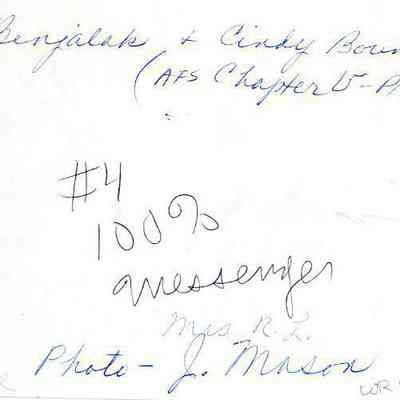 Benjalak + Cindy Boun
(AFS Chapter V - P
#4
100%
messenger
Mrs. R. L.
Photo - J. Mason
WR